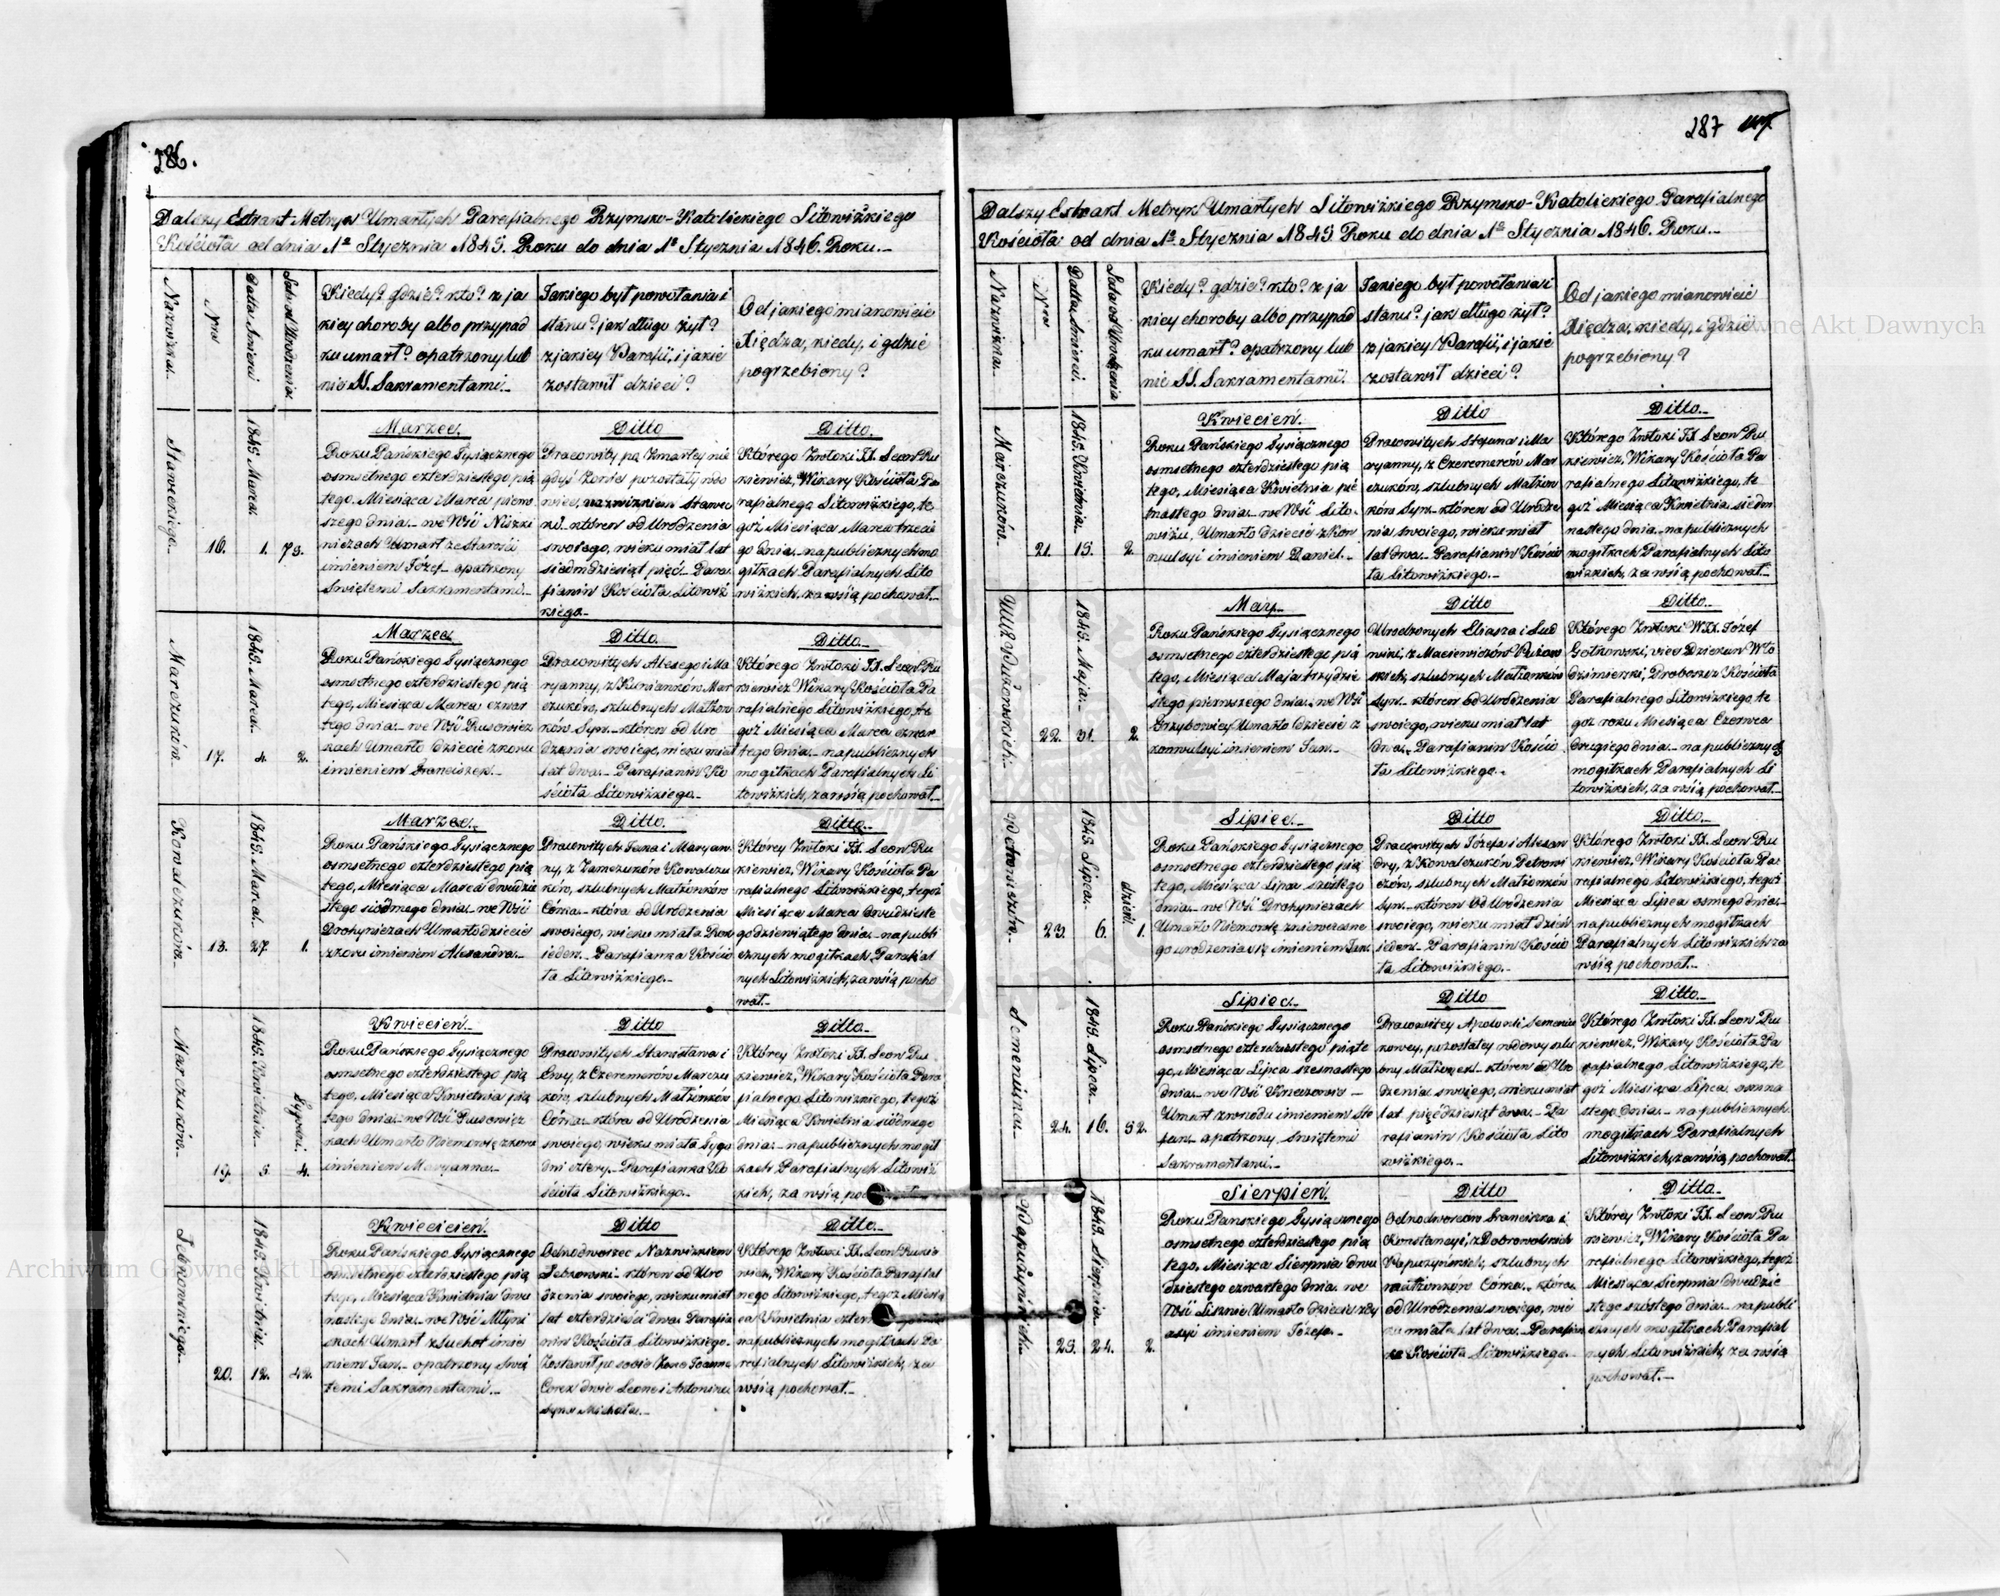 286.
Dalszy Extrakt Metryk Umarłych Parafialnego Rzymsko-Katolickiego Sitowizkiego
Kościoła od dnia 1º Stycznia 1845. Roku do dnia 1º Stycznia 1846. Roku.
Nazwiska.
Nro
Datta Śmierci
Lata od Urodzenia
Kiedy? gdzie? kto? z ja
kiey choroby albo przypad
ku umarł? opatrzony lub
nie SS. Sakramentami.
Jakiego był powołania i
stanu? jak długo żył?
z jakiey Parafii, i jakie
zostawił dzieci?
Od jakiego mianowicie
Xiędza, kiedy, i gdzie
pogrzebiony?
Sławeckiego.
16.
1845 Marca
1.
75.
Marzec.
Roku Pańskiego Tysiącznego
osmsetnego czterdziestego pią
tego, Miesiąca Marca pierw
szego dnia we Wsi
Umarł ze Starości
imieniem Józef opatrzony
Swiętemi Sakramentami.
Ditto
Pracowity po Zmarłey nie
gdyś Żonie pozostały wdo
wiec, nazwiskiem Sławec
ki któren od Urodzenia
swojego, wieku miał lat
siedmdziesiąt pięć Para
fianin Kościoła Sitowiz
kiego.
Ditto.
Którego Zwłoki JX. Leon Ru
kiewicz, Wikary Kościoła Pa
rafialnego Sitowizkiego, te
goż Miesiąca Marca trzecie
go dnia na publicznych mo
giłkach Parafialnych Sito
wizkich, za wsią pochował.
Marczuków.
17.
1845. Marca.
4.
2.
Marzec.
Roku Pańskiego Tysiącznego
osmsetnego czterdziestego pią
tego, Miesiąca Marca czwar
tego dnia we Wsi Rusowicz
kach Umarło dziecie z koru
imieniem Franciszek.
Ditto.
Pracowitych Alexego i Ma
ryanny, z Mar
czuków, szlubnych Małżon
ków Syn któren od Uro
dzenia swoiego, wieku miał
lat dwa. Parafianin Ko
ścioła Sitowizkiego.
Ditto.
Którego Zwłoki JX. Leon Ru
kiewicz Wikary Kościoła Pa
rafialnego Sitowizkiego, te
goż Miesiąca Marca czwar
tego dnia na publicznych
mogiłkach Parafialnych Si
towizkich, za wsią pochował.
Kowalczuków.
18.
1845. Marca.
27.
1.
Marzec.
Roku Pańskiego Tysiącznego
osmsetnego czterdziestego pią
tego, Miesiąca Marca dwudzie
stego siódmego dnia we Wsi
Drohyniczach Umarło dziecie
z koru imieniem Alexandra.
Ditto.
Pracowitych i Maryan
ny, z Kowalczu
ków, szlubnych Małżonków
Córka która od Urodzenia
swoiego, wieku miała Rok
ieden. Parafianka Kościo
ła Sitowizkiego.
Ditto.
Którey Zwłoki JX. Leon Ru
kiewicz, Wikary Kościoła Pa
rafialnego Sitowizkiego, tegoż
Miesiąca Marca dwudzieste
go dziewiątego dnia na publi
cznych mogiłkach Parafial
nych Sitowizkich, za wsią pocho
wał.
Marczuków.
19.
1845. Kwietnia.
5.
4.
Kwiecień.
Roku Pańskiego Tysiącznego
osmsetnego czterdziestego pią
tego, Miesiąca Kwietnia pią
tego dnia we Wsi Rusowicz
kach Umarło Niemowlę z koru
imieniem Maryanna.
Ditto
Pracowitych Stanisława i
Ewy, z Czeremerów Marczu
ków, szlubnych Małżonków
Córka która od Urodzenia
swoiego, wieku miała Tygo
dni cztery. Parafianka Ko
ścioła Sitowizkiego.
Ditto.
Którey Zwłoki JX. Leon Ru
kiewicz, Wikary Kościoła Para
fialnego Sitowizkiego, tegoż
Miesiąca Kwietnia siódmego
dnia na publicznych mogił
kach Parafialnych Sitowiz
kich, za wsią
20.
1845. Kwietnia.
12.
42.
Kwiecień.
Roku Pańskiego Tysiącznego
osmsetnego czterdziestego pią
tego, Miesiąca Kwietnia dwu
nastego dnia we Wsi Młyni
skach Umarł z Suchot imie
niem Jan opatrzony Swię
temi Sakramentami.
Ditto
Odnodworzec Nazwiskiem
któren od Uro
dzenia swoiego, wieku miał
lat czterdzieści dwa. Parafia
nin Kościoła Sitowizkiego.
Zostawił po sobie Żonę Joannę
Córek dwie Leonę i Antoninę
Syna Michała.
Ditto.
Którego Zwłoki JX. Leon Rukie
wicz, Wikary Kościoła Parafial
nego Sitowizkiego, tegoż Miesią
ca Kwietnia
na publicznych mogiłkach Pa
rafialnych Sitowizkich, za
wsią pochował.
287
Dalszy Extrakt Metryk Umarłych Sitowizkiego Rzymsko-Katolickiego Parafialnego
Kościoła od dnia 1º Stycznia 1845 Roku do dnia 1º Stycznia 1846. Roku.
Nazwiska.
Nro
Datta Śmierci.
Lata od Urodzenia
Kiedy? gdzie? kto? z ja
kiey choroby albo przypad
ku umarł? opatrzony lub
nie SS. Sakramentami.
Jakiego był powołania i
stanu? jak długo żył?
z jakiey Parafii, i jakie
zostawił dzieci?
Od jakiego mianowicie
Xiędza, kiedy, i gdzie
pogrzebiony?
Marczuków.
21.
1845. Kwietnia.
15.
2.
Kwiecień.
Roku Pańskiego Tysiącznego
osmsetnego czterdziestego pią
tego, Miesiąca Kwietnia pię
tnastego dnia we Wsi Sito
wizku, Umarło dziecie z Kon
wulsyi imieniem Daniel.
Ditto
Pracowitych Stefana i Ma
ryanny, z Czeremerów Mar
czuków, szlubnych Małżon
ków Syn któren od Urodze
nia swoiego, wieku miał
lat dwa Parafianin Kościo
ła Sitowizkiego.
Ditto.
Którego Zwłoki JX. Leon Ru
kiewicz, Wikary Kościoła Pa
rafialnego Sitowizkiego, te
goż Miesiąca Kwietnia siedm
nastego dnia na publicznych
mogiłkach Parafialnych Sito
wizkich, za wsią pochował.
22.
1845. Maja.
31.
2.
May.
Roku Pańskiego Tysiącznego
osmsetnego czterdziestego pią
tego, Miesiąca Maja trzydzie
stego pierwszego dnia we Wsi
Grzybowicy Umarło Dziecie z
konwulsyi imieniem Jan.
Ditto
Urodzonych Eliasza i Lud
wiki, z Maciewiczów
skich, szlubnych Małżonków
Syn któren od Urodzenia
swoiego, wieku miał lat
dwa. Parafianin Kościo
ła Sitowizkiego.
Ditto.
Którego Zwłoki WJX. Józef
Gotkowski, vice Dziekan Wło
dzimierski, Proboszcz Kościoła
Parafialnego Sitowizkiego, te
goż roku Miesiąca Czerwca
drugiego dnia na publicznych
mogiłkach Parafialnych Si
towizkich, za wsią pochował.
23.
1845. Lipca.
6.
dzień
1.
Lipiec.
Roku Pańskiego Tysiącznego
osmsetnego czterdziestego pią
tego, Miesiąca Lipca szóstego
dnia we Wsi Drohyniczach
Umarło Niemowlę z niewczesne
go urodzenia się imieniem Jan.
Ditto
Pracowitych Józefa i Alexan
dry, z Kowalczuków
szlubnych Małżonków
Syn któren od Urodzenia
swoiego, wieku miał dzień
ieden. Parafianin Kościo
ła Sitowizkiego.
Ditto.
Którego Zwłoki JX. Leon Ru
kiewicz, Wikary Kościoła Pa
rafialnego Sitowizkiego, tegoż
Miesiąca Lipca osmego dnia
na publicznych mogiłkach
Parafialnych Sitowizkich za
wsią pochował.
24.
1845. Lipca.
16.
52.
Lipiec.
Roku Pańskiego Tysiącznego
osmsetnego czterdziestego piąte
go, Miesiąca Lipca szesnastego
dnia we Wsi
Umarł z wrzodu imieniem Ste
fan opatrzony, Swiętemi
Sakramentami.
Ditto
Pracowitey Apolonii
kowey, pozostałey wdowy szlu
bny Małżonek któren od Uro
dzenia swoiego, wieku miał
lat pięćdziesiąt dwa. Pa
rafianin Kościoła Sito
wizkiego.
Ditto.
Którego Zwłoki JX. Leon Ru
kiewicz, Wikary Kościoła Pa
rafialnego Sitowizkiego, te
goż Miesiąca Lipca osmna
stego dnia na publicznych
mogiłkach Parafialnych
Sitowizkich, za wsią pochował.
25.
1845. Sierpnia.
24.
2.
Sierpień.
Roku Pańskiego Tysiącznego
osmsetnego czterdziestego pią
tego, Miesiąca Sierpnia dwu
dziestego czwartego dnia we
Wsi Umarło dziecie z dy
imieniem Józefa.
Ditto
Odnodworców Franciszka i
Konstancyi, z Dobrowolskich
Kapuzyńskich, szlubnych
małżonków Córka która
od Urodzenia swoiego, wie
ku miała lat dwa Parafian
ka Kościoła Sitowizkiego.
Ditto.
Którey Zwłoki JX. Leon Ru
kiewicz, Wikary Kościoła Pa
rafialnego Sitowizkiego, tegoż
Miesiąca Sierpnia dwudzie
stego szóstego dnia na publi
cznych mogiłkach Parafial
nych Sitowizkich, za wsią
pochował.
Archiwum Główne Akt Dawnych
Główne Akt Dawnych